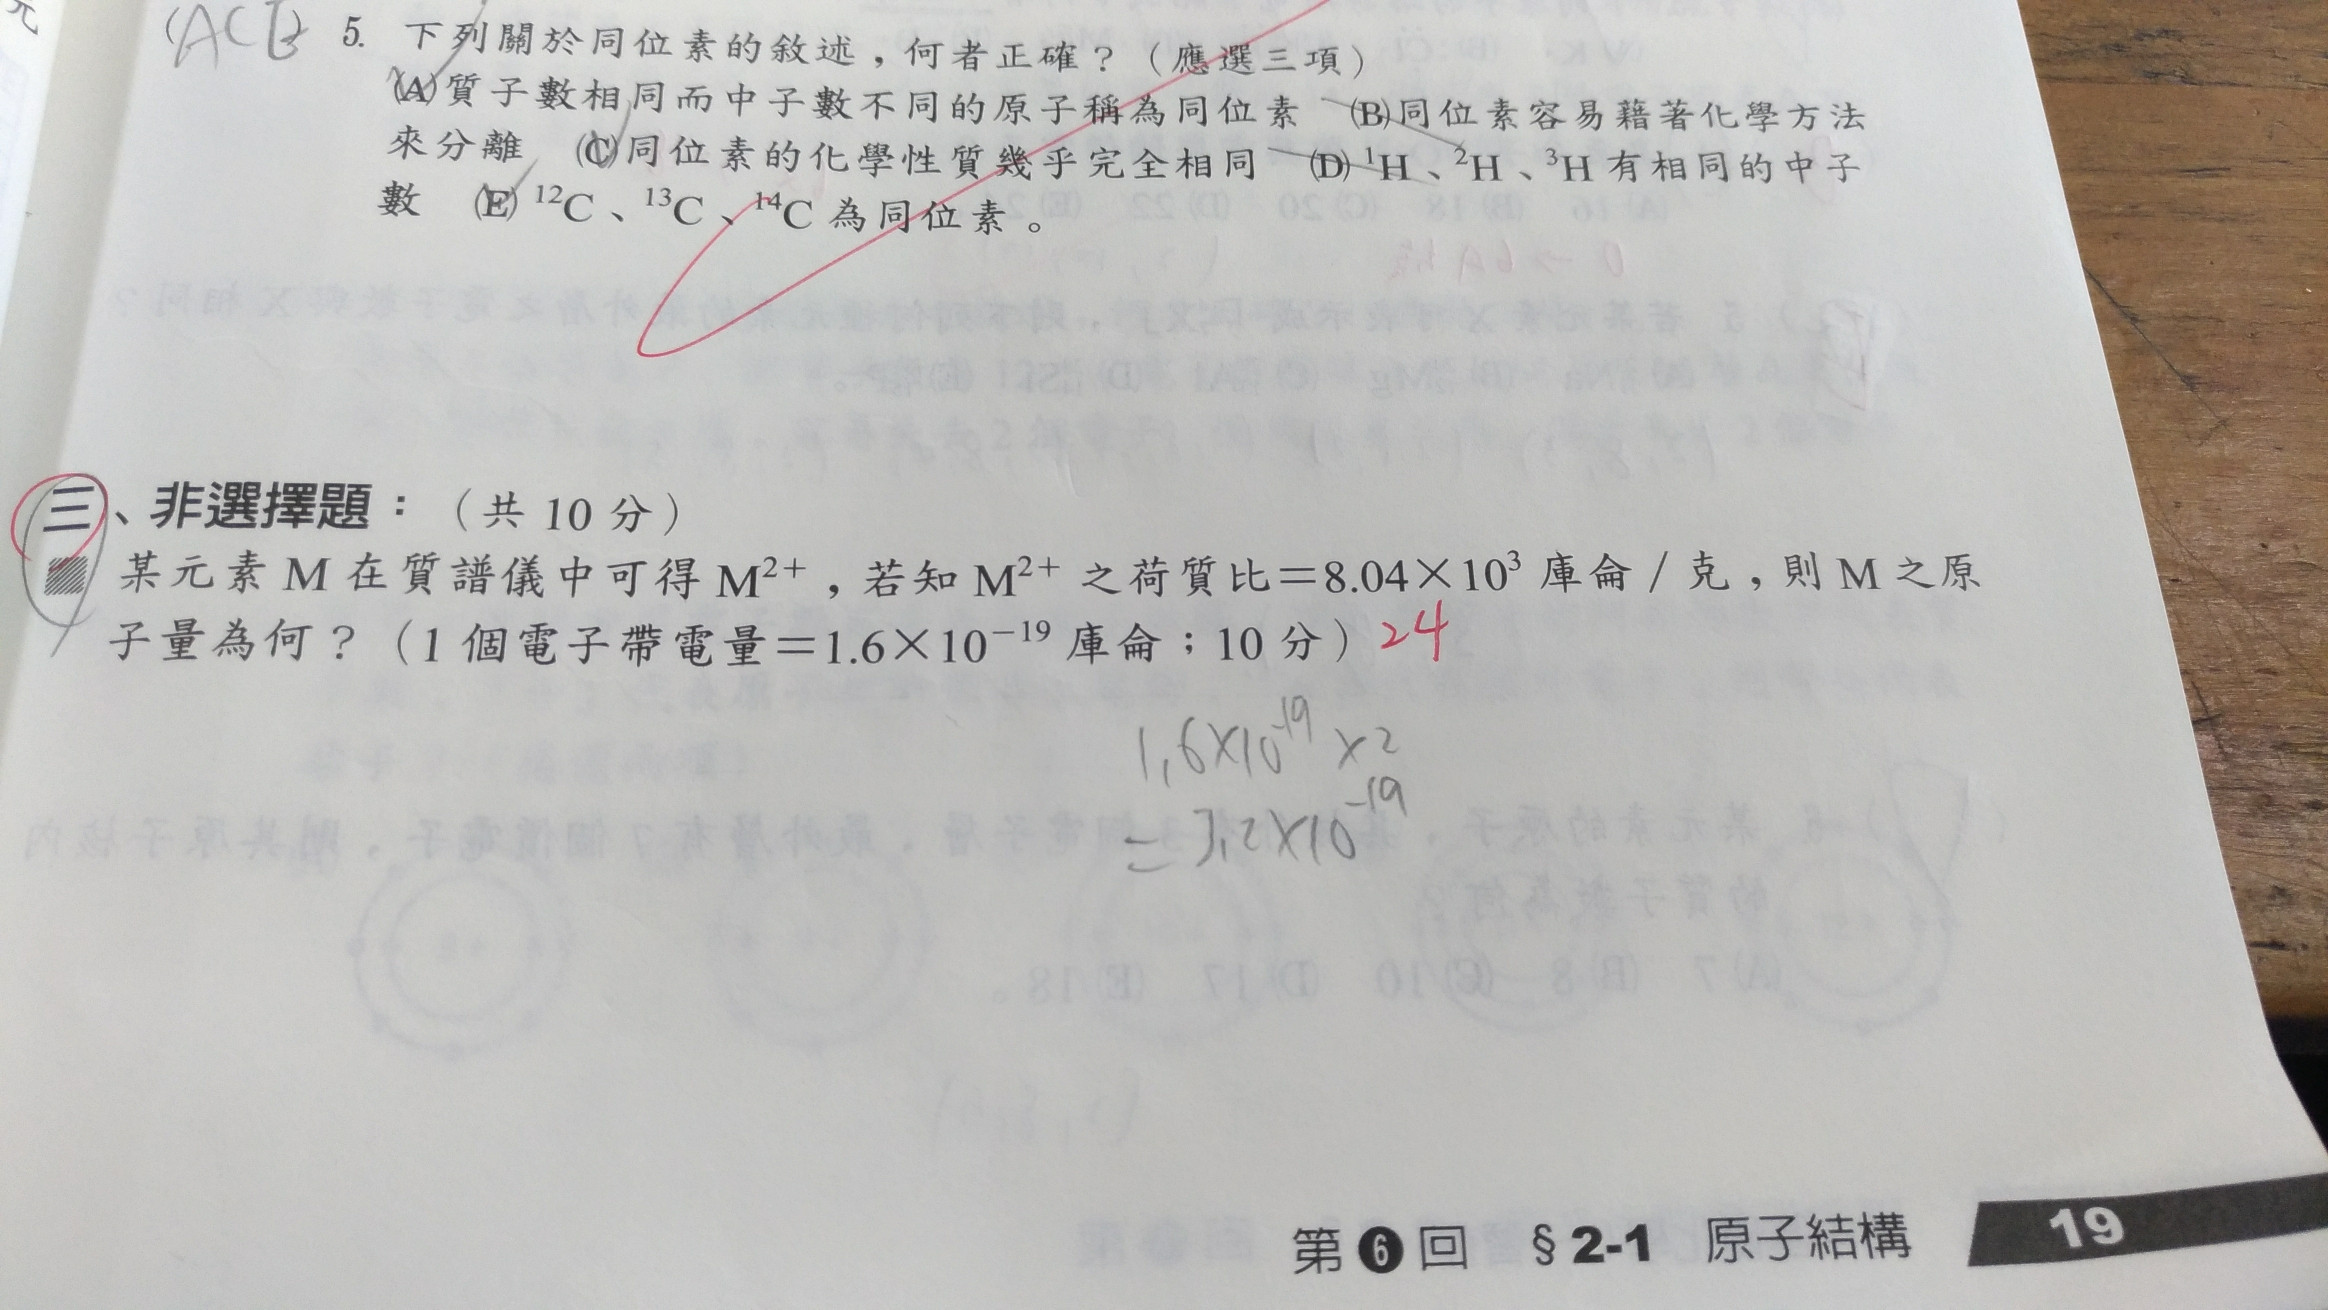 (ACE) 5. 下列關於同位素的敘述，何者正確？（應選三項）
(A)質子數相同而中子數不同的原子稱為同位素 (B)同位素容易藉著化學方法
來分離 (C)同位素的化學性質幾乎完全相同 (D) ¹H、²H、³H 有相同的中子
數 (E) ¹²C、¹³C、¹⁴C 為同位素。
三、非選擇題：（共 10 分）
某元素 M 在質譜儀中可得 M²⁺，若知 M²⁺ 之荷質比＝8.04×10³ 庫侖／克，則 M 之原
子量為何？（1 個電子帶電量＝1.6×10⁻¹⁹ 庫侖；10 分）24
1.6×10⁻¹⁹ ×2
= 3.2×10⁻¹⁹
第 6 回 § 2-1 原子結構 19